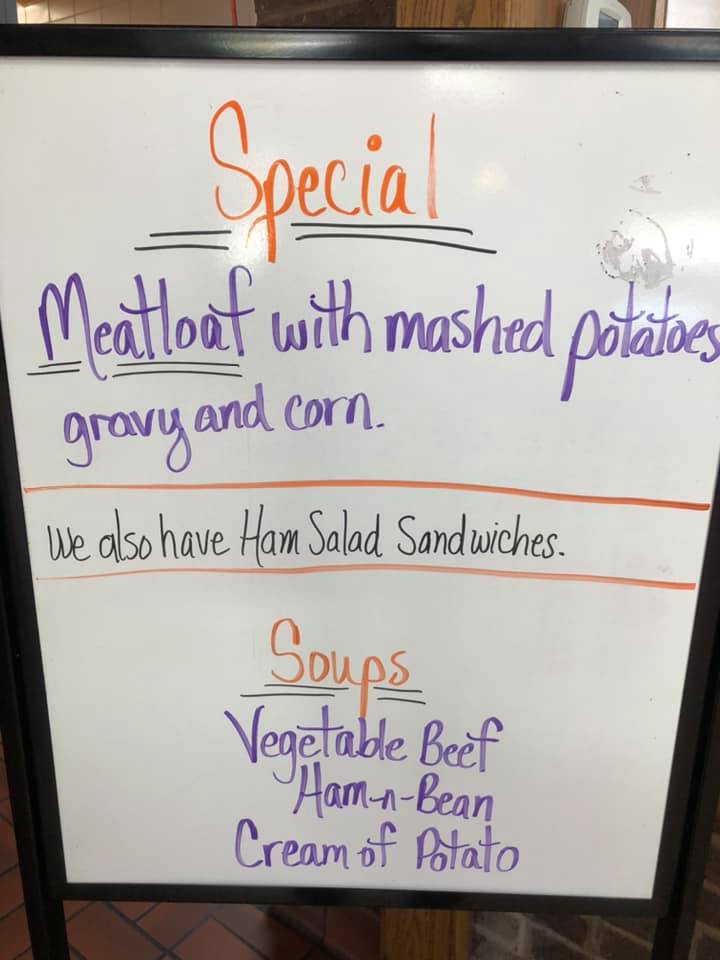 Special
Meatloaf with mashed potatoes
gravy and corn.
We also have Ham Salad Sandwiches.
Soups
Vegetable Beef
Ham-n-Bean
Cream of Potato